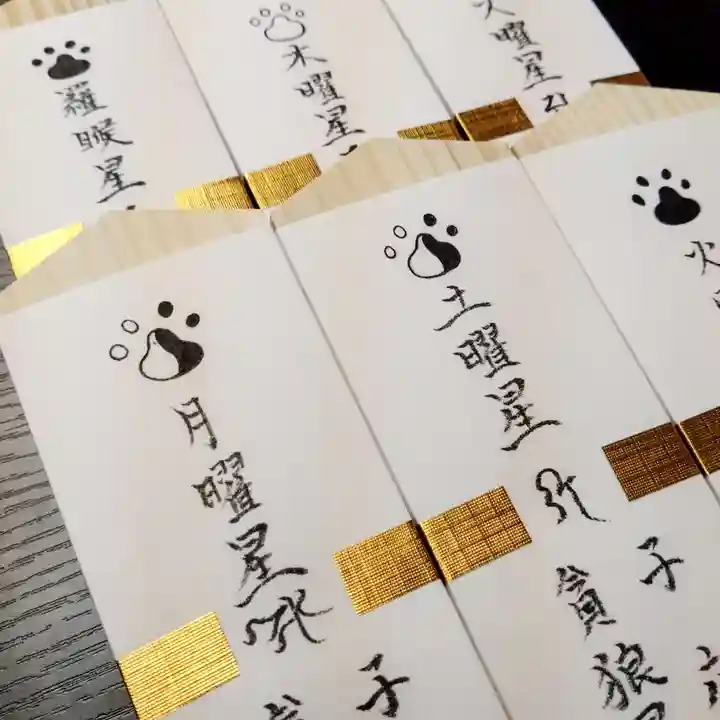 羅睺星
木曜星
火曜星
月曜星
子
土曜星
子
貪狼
火